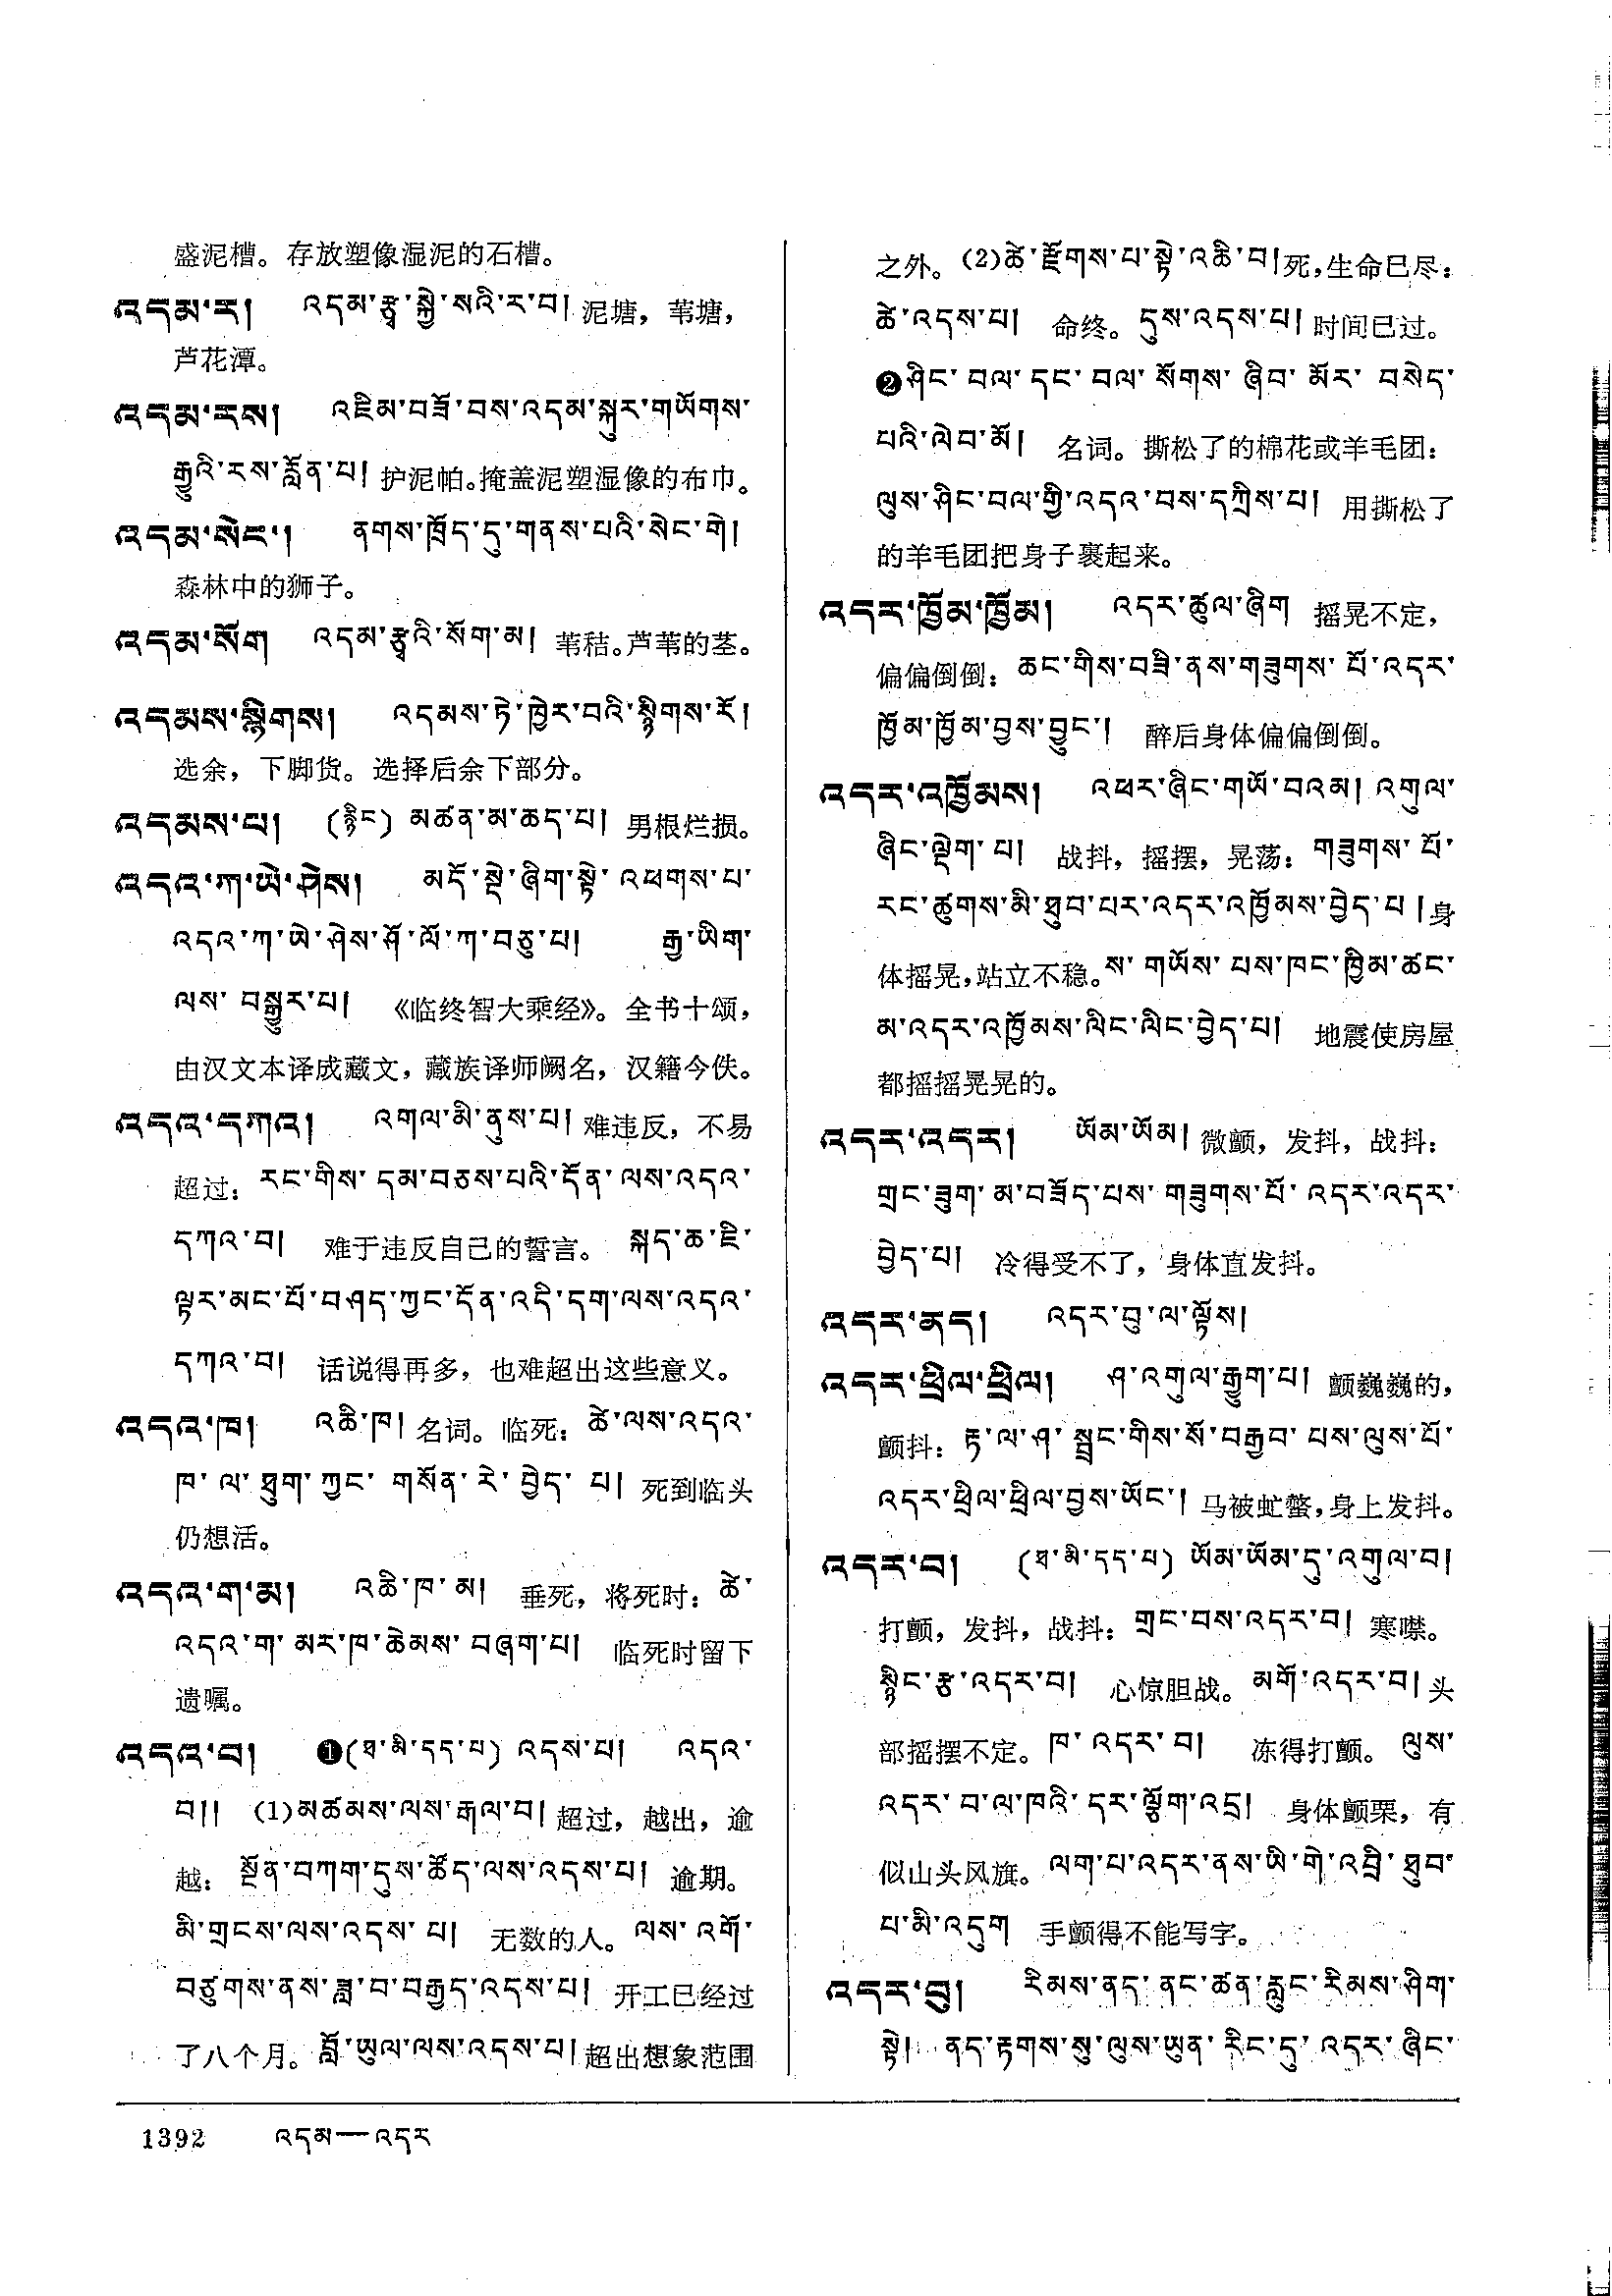 盛泥槽。存放塑像湿泥的石槽。
འདམ་ར། འདམ་རྩྭ་སྐྱེ་སའི་ར་བ། 泥塘，苇塘，
芦花潭。
འདམ་རས། འཇིམ་བཟོ་བས་འདམ་སྐུར་གཡོགས་
རྒྱུའི་རས་རློན་པ། 护泥帕。掩盖泥塑湿像的布巾。
འདམ་སེང་། ནགས་ཁྲོད་དུ་གནས་པའི་སེང་གེ།
森林中的狮子。
འདམ་སོག འདམ་རྩྭའི་སོག་མ། 苇秸。芦苇的茎。
འདམས་སྙིགས། འདམས་ཏེ་ཁྱེར་བའི་སྙིགས་རོ།
选余，下脚货。选择后余下部分。
འདམས་པ། (རྙིང) མཚན་མ་ཆད་པ། 男根烂损。
འདའ་ཀ་ཡེ་ཤེས། མདོ་སྡེ་ཞིག་སྟེ་འཕགས་པ་
འདའ་ཀ་ཡེ་ཤེས་ཤོ་ལོ་ཀ་བཅུ་པ། རྒྱ་ཡིག་
ལས་བསྒྱུར་པ། 《临终智大乘经》。全书十颂，
由汉文本译成藏文，藏族译师阙名，汉籍今佚。
འདའ་དཀའ། འགལ་མི་ནུས་པ། 难违反，不易
超过：རང་གིས་དམ་བཅས་པའི་དོན་ལས་འདའ་
དཀའ་བ། 难于违反自己的誓言。 སྐད་ཆ་ཇི་
ལྟར་མང་པོ་བཤད་ཀྱང་དོན་འདི་དག་ལས་འདའ་
དཀའ་བ། 话说得再多，也难超出这些意义。
འདའ་ཁ། འཆི་ཁ། 名词。临死：ཚེ་ལས་འདའ་
ཁ་ལ་ཐུག་ཀྱང་གསོན་རེ་བྱེད་པ། 死到临头
仍想活。
འདའ་ག་མ། འཆི་ཁ་མ། 垂死，将死时：ཚེ་
འདའ་ག་མར་ཁ་ཆེམས་བཞག་པ། 临死时留下
遗嘱。
འདའ་བ། ❶(ཐ་མི་དད་པ) འདས་པ། འདའ་
བ།། (1)མཚམས་ལས་རྒལ་བ། 超过，越出，逾
越：སྔོན་བཀག་དུས་ཚོད་ལས་འདས་པ། 逾期。
མི་གྲངས་ལས་འདས་པ། 无数的人。ལས་འགོ་
བཙུགས་ནས་ཟླ་བ་བརྒྱད་འདས་པ། 开工已经过
了八个月。བློ་ཡུལ་ལས་འདས་པ། 超出想象范围
之外。(2)ཚེ་རྫོགས་པ་སྟེ་འཆི་བ། 死，生命已尽：
ཚེ་འདས་པ། 命终。དུས་འདས་པ། 时间已过。
❷ཤིང་བལ་དང་བལ་སོགས་ཞིབ་མོར་བསེད་
པའི་ལེབ་མོ། 名词。撕松了的棉花或羊毛团：
ལུས་ཤིང་བལ་གྱི་འདའ་བས་དཀྲིས་པ། 用撕松了
的羊毛团把身子裹起来。
འདར་ཁྱོམ་ཁྱོམ། འདར་ཚུལ་ཞིག 摇晃不定，
偏偏倒倒：ཆང་གིས་བཟི་ནས་གཟུགས་པོ་འདར་
ཁྱོམ་ཁྱོམ་བྱས་བྱུང་། 醉后身体偏偏倒倒。
འདར་འཁྱོམས། འཕར་ཞིང་གཡོ་བའམ། འགུལ་
ཞིང་ལྡེག་པ། 战抖，摇摆，晃荡：གཟུགས་པོ་
རང་ཚུགས་མི་ཐུབ་པར་འདར་འཁྱོམས་བྱེད་པ། 身
体摇晃，站立不稳。ས་གཡོས་པས་ཁང་ཁྱིམ་ཚང་
མ་འདར་འཁྱོམས་ལིང་ལིང་བྱེད་པ། 地震使房屋
都摇摇晃晃的。
འདར་འདར། ཡོམ་ཡོམ། 微颤，发抖，战抖：
གྲང་ཟུག་མ་བཟོད་པས་གཟུགས་པོ་འདར་འདར་
བྱེད་པ། 冷得受不了，身体直发抖。
འདར་ནད། འདར་བུ་ལ་ལྟོས།
འདར་ཕྲིལ་ཕྲིལ། ཤ་འགུལ་རྒྱུག་པ། 颤巍巍的，
颤抖：རྟ་ལ་ཤ་སྦྲང་གིས་སོ་བརྒྱབ་པས་ལུས་པོ་
འདར་ཕྲིལ་ཕྲིལ་བྱས་ཡོང་། 马被虻螫，身上发抖。
འདར་བ། (ཐ་མི་དད་པ) ཡོམ་ཡོམ་དུ་འགུལ་བ།
打颤，发抖，战抖：གྲང་བས་འདར་བ། 寒噤。
སྙིང་རྩ་འདར་བ། 心惊胆战。མགོ་འདར་བ། 头
部摇摆不定。ཁ་འདར་བ། 冻得打颤。ལུས་
འདར་བ་ལ་ཁའི་དར་ལྕོག་འདྲ། 身体颤栗，有
似山头风旗。ལག་པ་འདར་ནས་ཡི་གེ་འབྲི་ཐུབ་
པ་མི་འདུག 手颤得不能写字。
འདར་བུ། རིམས་ནད་ནང་ཚན་རླུང་རིམས་ཤིག་
སྟེ། ནད་རྟགས་སུ་ལུས་ཡུན་རིང་དུ་འདར་ཞིང་
1392 འདམ—འདར